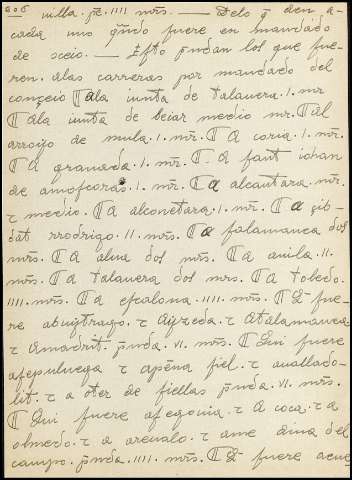 206 villa. pē. IIII mr̄s. — Delo q̄ den a
cada uno q̄ndo fuere en mandado
de 9ceio. — Esto p̄ndan los que fue-
ren. alas carreras por mandado del
conçeio ¶ ala iunta de talauera. I. mr̄
¶ Ala iunta de beiar medio mr̄. ¶ Al
arroyo de mula. I. mr̄. ¶ A coria. I. mr̄.
¶ A granada. I. mr̄. ¶ A sant iohan
de mascoras. I. mr̄. ¶ a alcantara. mr̄.
τ medio. ¶ A alconetara. I. mr̄. ¶ A çib-
dat rrodrigo. II. mr̄s. ¶ a salamanca dos
mr̄s. ¶ A alua dos mr̄s. ¶ A auila. II.
mr̄s. ¶ A talauera dos mr̄s. ¶ A toledo.
IIII. mr̄s. ¶ A escalona. IIII. mr̄s. ¶ Q̄ fue-
re abuytrago. τ a τ Atalamanca
τ Amadrit. p̄nda. VI. mr̄s. ¶ Qui fuere
asepuluega τ apēna fiel. τ auallado-
lit. τ a oter de siellas p̄nda. VI. mr̄s.
¶ Qui fuere asegouia. τ A coca. τ a
olmedo. τ a areualo. τ ame dina del
campo. p̄nda. IIII. mr̄s. ¶ Q̄ fuere acue